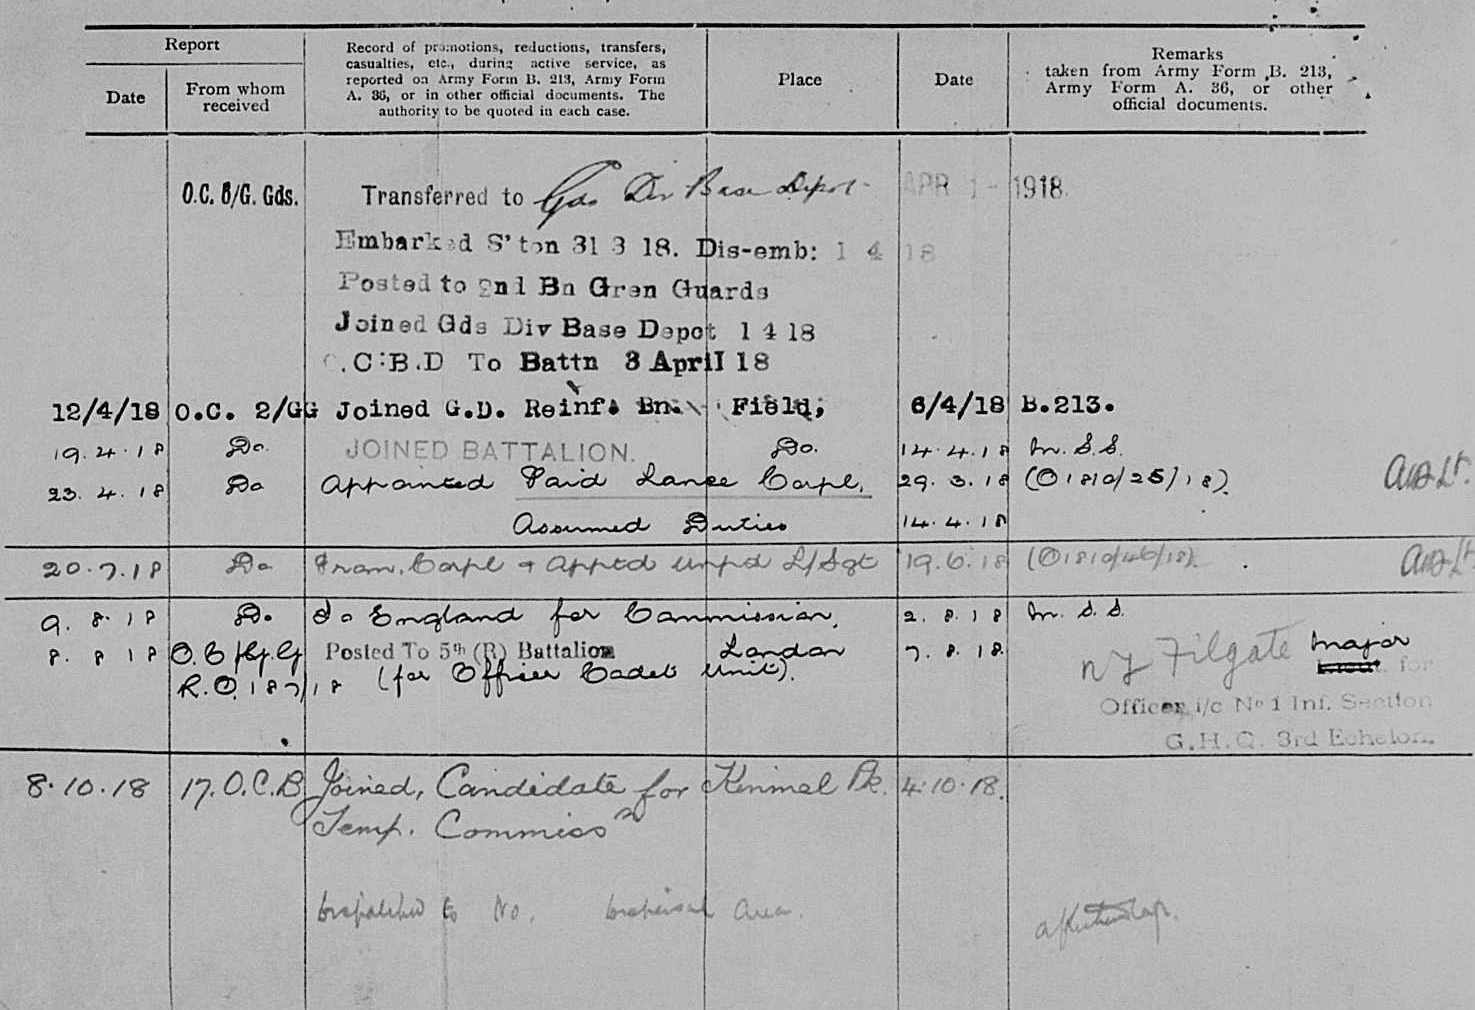 Report
Date
From whom
received
Record of promotions, reductions, transfers,
casualties, etc., during active service, as
reported on Army Form B. 213, Army Form
A. 36, or in other official documents. The
authority to be quoted in each case.
Place
Date
Remarks
taken from Army Form B. 213,
Army Form A. 36, or other
official documents.
O.C. B/G. Gds. Transferred to Gds Div Base Depot APR 1 - 1918.
Embarked S'ton 31 3 18. Dis-emb: 1 4 18
Posted to 2nd Bn Gren Guards
Joined Gds Div Base Depot 1 4 18
.C:B.D To Battn 3 April 18
12/4/18 O.C. 2/GG Joined G.D. Reinf. Bn. Field, 6/4/18 B.213.
19.4.18 Do. JOINED BATTALION. Do. 14.4.18 M.S.S.
23.4.18 Do Appointed Paid Lance Corpl. 29.3.18 (O1810/25/18).
Assumed Duties 14.4.18
20.7.18 Do Prom. Corpl + Apptd Unpd L/Sgt 19.6.18 (O1810/46/18).
9.8.18 Do. To England for Commission, 2.8.18 M.S.S.
8.8.18 Posted To 5th (R) Battalion London 7.8.18. Filgate Major
R.O. 187/18 (for Officer Cadet Unit). for
Officer i/c No 1 Inf. Section
G.H.Q. 3rd Echelon.
8.10.18 17.O.C.B Joined, Candidate for Kinmel Pk. 4.10.18.
Temp. Commissn
Dispatched to No. Dispersal Area.